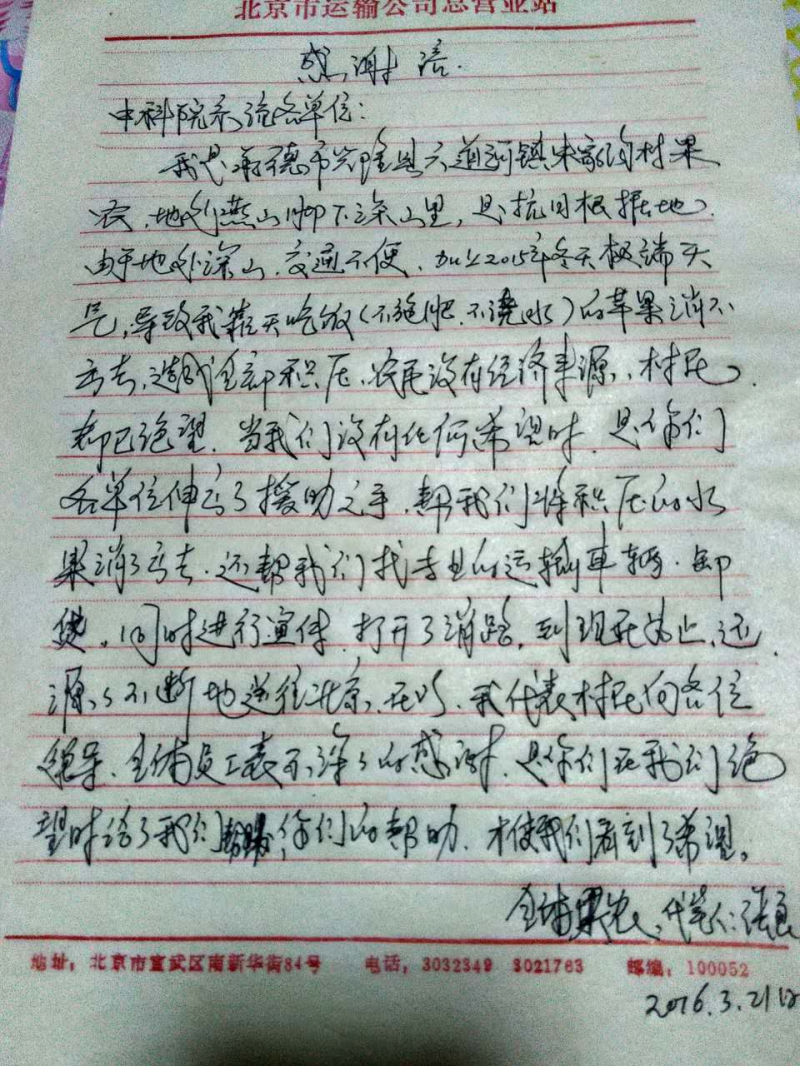 北京市运输公司总营业站
感谢信
中科院系统各单位：
我是承德市兴隆县六道河镇朱家沟村果
农，地处燕山脚下深山里，是抗日根据地.
由于地处深山，交通不便，加上2015年冬天极端天
气，导致我靠天吃饭（不施肥.不浇水）的苹果消不
出去，造成全部积压，农民没有经济来源，村民
都已绝望。当我们没有任何希望时，是你们
各单位伸出了援助之手，帮我们将积压的水
果消了出去.还帮我们找专业的运输车辆.卸
货，同时进行宣传，打开了消路，到现在为止，还
源源不断地送往北京，在此，我代表村民向各位
领导、全体员工表示深深的感谢，是你们在我们绝
望时给了我们 你们的帮助，才使我们看到了希望。
全体果农，代笔人：张
地址：北京市宣武区南新华街84号 电话：3032349 3021763 邮编：100052
2016.3.21日